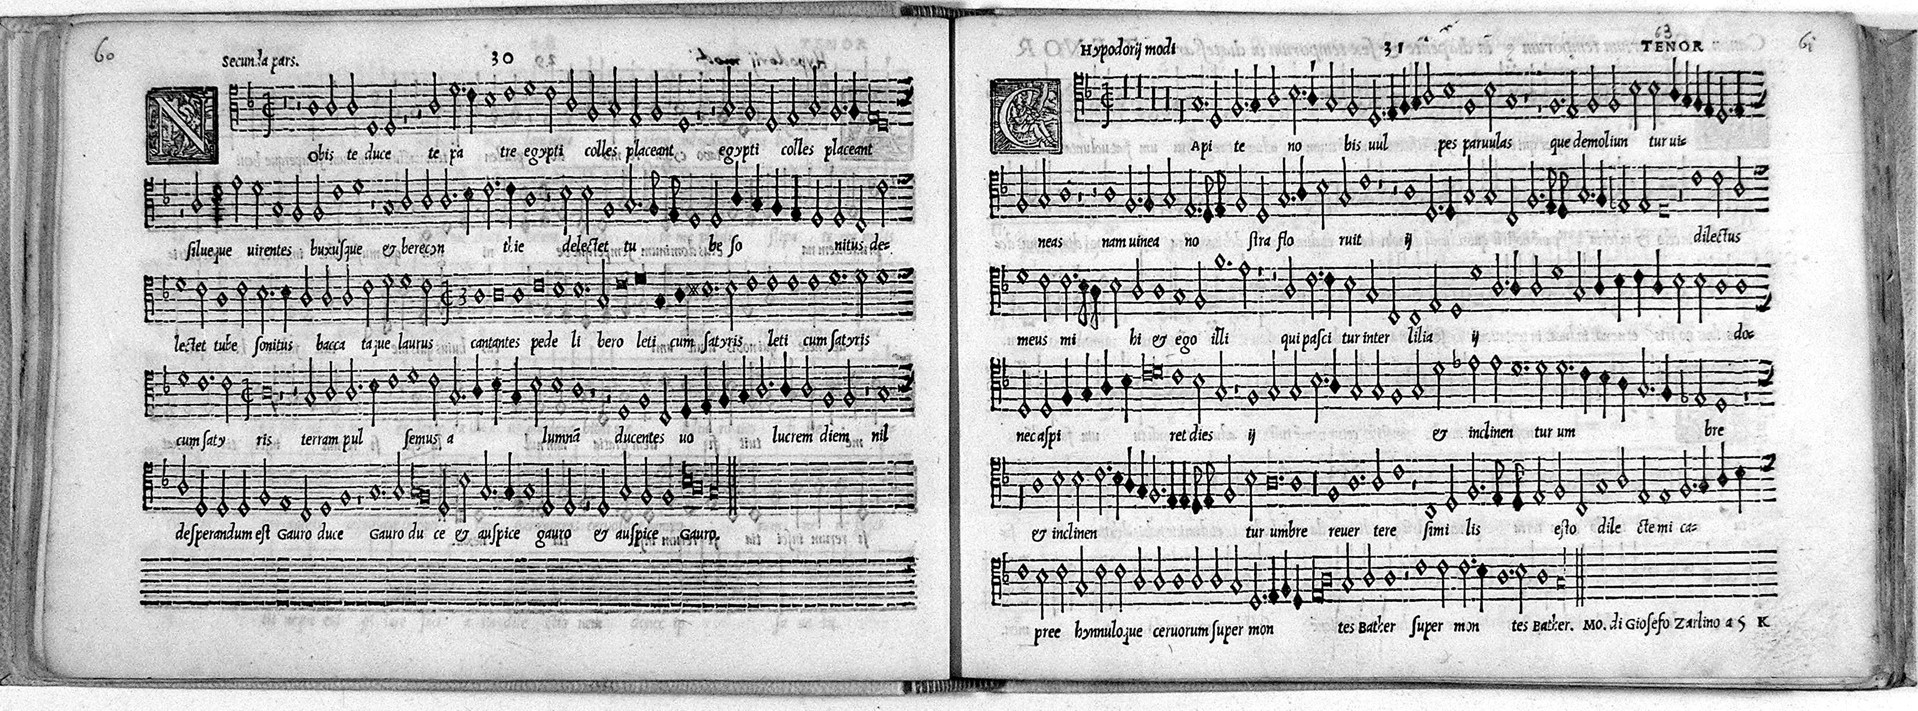 60
Secunda pars. 30
Nobis te duce te pa tre egypti colles placeant egypti colles placeant
silueque uirentes buxusque & berecyn thie delectet tu be so nitus de=
lectet tube sonitus bacca taque laurus cantantes pede li bero leti cum satyris leti cum satyris
cum saty ris terram pul semus a lumnā ducentes uo lucrem diem nil
desperandum est Gauro duce Gauro du ce & auspice gauro & auspice Gauro.
Hypodorij modi 31 63 TENOR 61
CApi te no bis uul pes paruulas que demoliun tur ui=
neas nam uinea no stra flo ruit ij dilectus
meus mi hi & ego illi qui pasci tur inter lilia ij do=
nec aspi ret dies ij & inclinen tur um bre
& inclinen tur umbre reuer tere simi lis esto dile cte mi ca=
pree hynnuloque ceruorum super mon tes Bather super mon tes Bather. MO. di Gioseffo Zarlino a 5 K